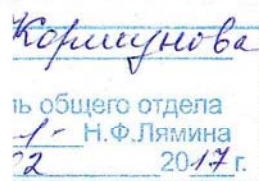 Кормунова
ь общего отдела
Н.Ф.Лямина
22 2017 г.